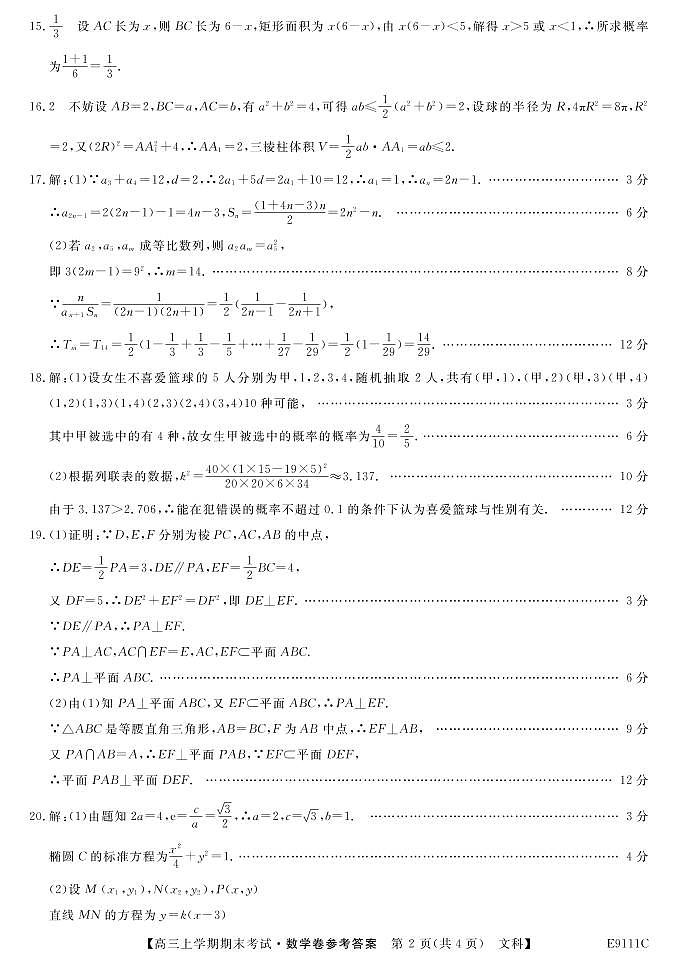 15. 1/3 设 AC 长为 x,则 BC 长为 6-x,矩形面积为 x(6-x),由 x(6-x)<5,解得 x>5 或 x<1,∴所求概率
为(1+1)/6=1/3.
16. 2 不妨设 AB=2,BC=a,AC=b,有 a²+b²=4,可得 ab≤1/2(a²+b²)=2,设球的半径为 R,4πR²=8π,R²
=2,又(2R)²=AA₁²+4,∴AA₁=2,三棱柱体积 V=1/2 ab·AA₁=ab≤2.
17. 解:(1)∵a₃+a₄=12,d=2,∴2a₁+5d=2a₁+10=12,∴a₁=1,∴aₙ=2n-1. ………… 3 分
∴a₂ₙ₋₁=2(2n-1)-1=4n-3,Sₙ=(1+4n-3)n/2=2n²-n. ………… 6 分
(2)若 a₂,a₅,aₘ 成等比数列,则 a₂aₘ=a₅²,
即 3(2m-1)=9²,∴m=14. ………… 8 分
∵n/(aₙ₊₁Sₙ)=1/((2n-1)(2n+1))=1/2(1/(2n-1)-1/(2n+1)),
∴Tₘ=T₁₄=1/2(1-1/3+1/3-1/5+…+1/27-1/29)=1/2(1-1/29)=14/29. ………… 12 分
18. 解:(1)设女生不喜爱篮球的 5 人分别为甲,1,2,3,4,随机抽取 2 人,共有(甲,1),(甲,2)(甲,3)(甲,4)
(1,2)(1,3)(1,4)(2,3)(2,4)(3,4)10 种可能, ………… 3 分
其中甲被选中的有 4 种,故女生甲被选中的概率的概率为4/10=2/5. ………… 6 分
(2)根据列联表的数据,k²=40×(1×15-19×5)²/(20×20×6×34)≈3.137. ………… 10 分
由于 3.137>2.706,∴能在犯错误的概率不超过 0.1 的条件下认为喜爱篮球与性别有关. ………… 12 分
19. (1)证明:∵D,E,F 分别为棱 PC,AC,AB 的中点,
∴DE=1/2 PA=3,DE∥PA,EF=1/2 BC=4,
又 DF=5,∴DE²+EF²=DF²,即 DE⊥EF. ………… 3 分
∵DE∥PA,∴PA⊥EF.
∵PA⊥AC,AC∩EF=E,AC,EF⊂平面 ABC.
∴PA⊥平面 ABC. ………… 6 分
(2)由(1)知 PA⊥平面 ABC,又 EF⊂平面 ABC,∴PA⊥EF.
∵△ABC 是等腰直角三角形,AB=BC,F 为 AB 中点,∴EF⊥AB, ………… 9 分
又 PA∩AB=A,∴EF⊥平面 PAB,∵EF⊂平面 DEF,
∴平面 PAB⊥平面 DEF. ………… 12 分
20. 解:(1)由题知 2a=4,e=c/a=√3/2,∴a=2,c=√3,b=1. ………… 3 分
椭圆 C 的标准方程为x²/4+y²=1. ………… 4 分
(2)设 M (x₁,y₁),N(x₂,y₂),P(x,y)
直线 MN 的方程为 y=k(x-3)
【高三上学期期末考试·数学卷参考答案 第 2 页(共 4 页) 文科】 E9111C